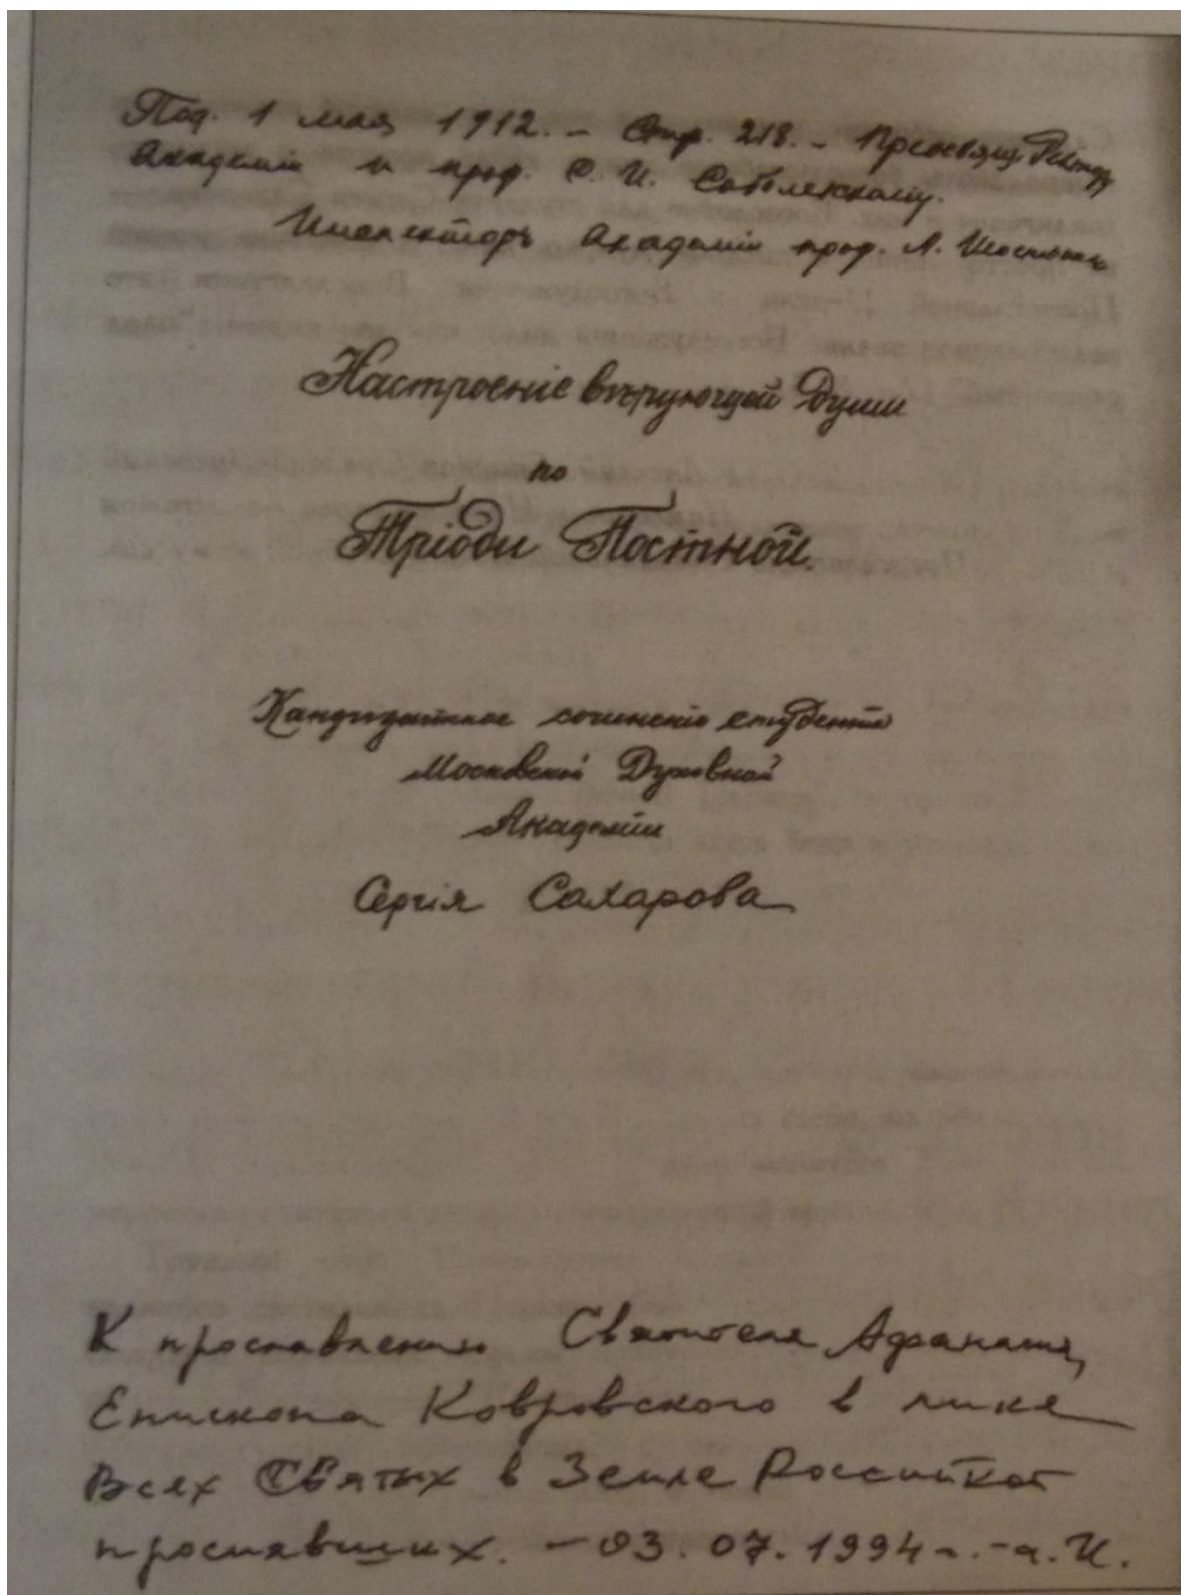 Под. 1 мая 1912. – Стр. 218. – Преосвящ. Ректору
Академіи и проф. С. И. Соболевскому.
Инспекторъ Академіи проф. А. Шостьинъ
Настроеніе вѣрующей души
по
Тріоди Постной.
Кандидатское сочиненіе студента
Московской Духовной
Академіи
Сергія Сахарова
К прославлению Святителя Афанасия,
Епископа Ковровского в лике
Всех Святых в Земле Российской
просиявших. – 03.07.1994 – а. И.